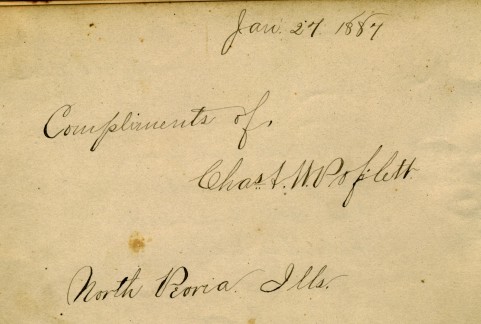 Jan. 27. 1887
Compliments of,
Chas. W.
North Peoria. Ills.